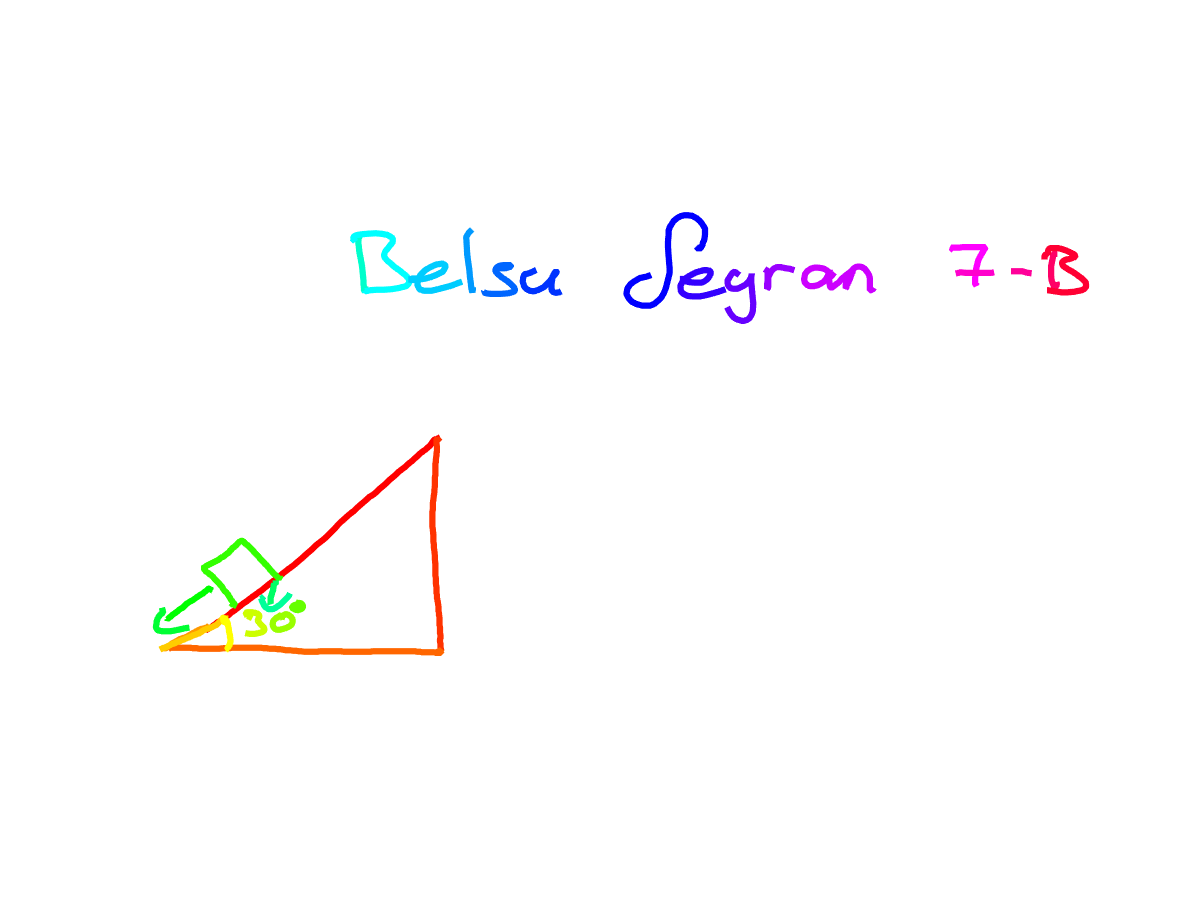 Belsu Seyran 7-B
30°